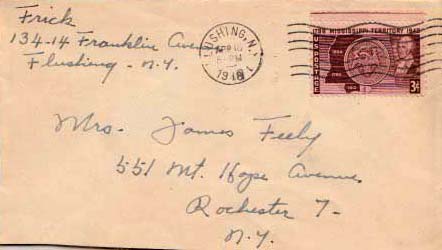 Frick
134-14 Franklin Avenue
Flushing - N.Y.
FLUSHING, N.Y.
PM
1948
1798 MISSISSIPPI TERRITORY 1948
U.S. POSTAGE
3¢
Mrs. James Feely
551 Mt. Hope Avenue
Rochester 7-
N.Y.